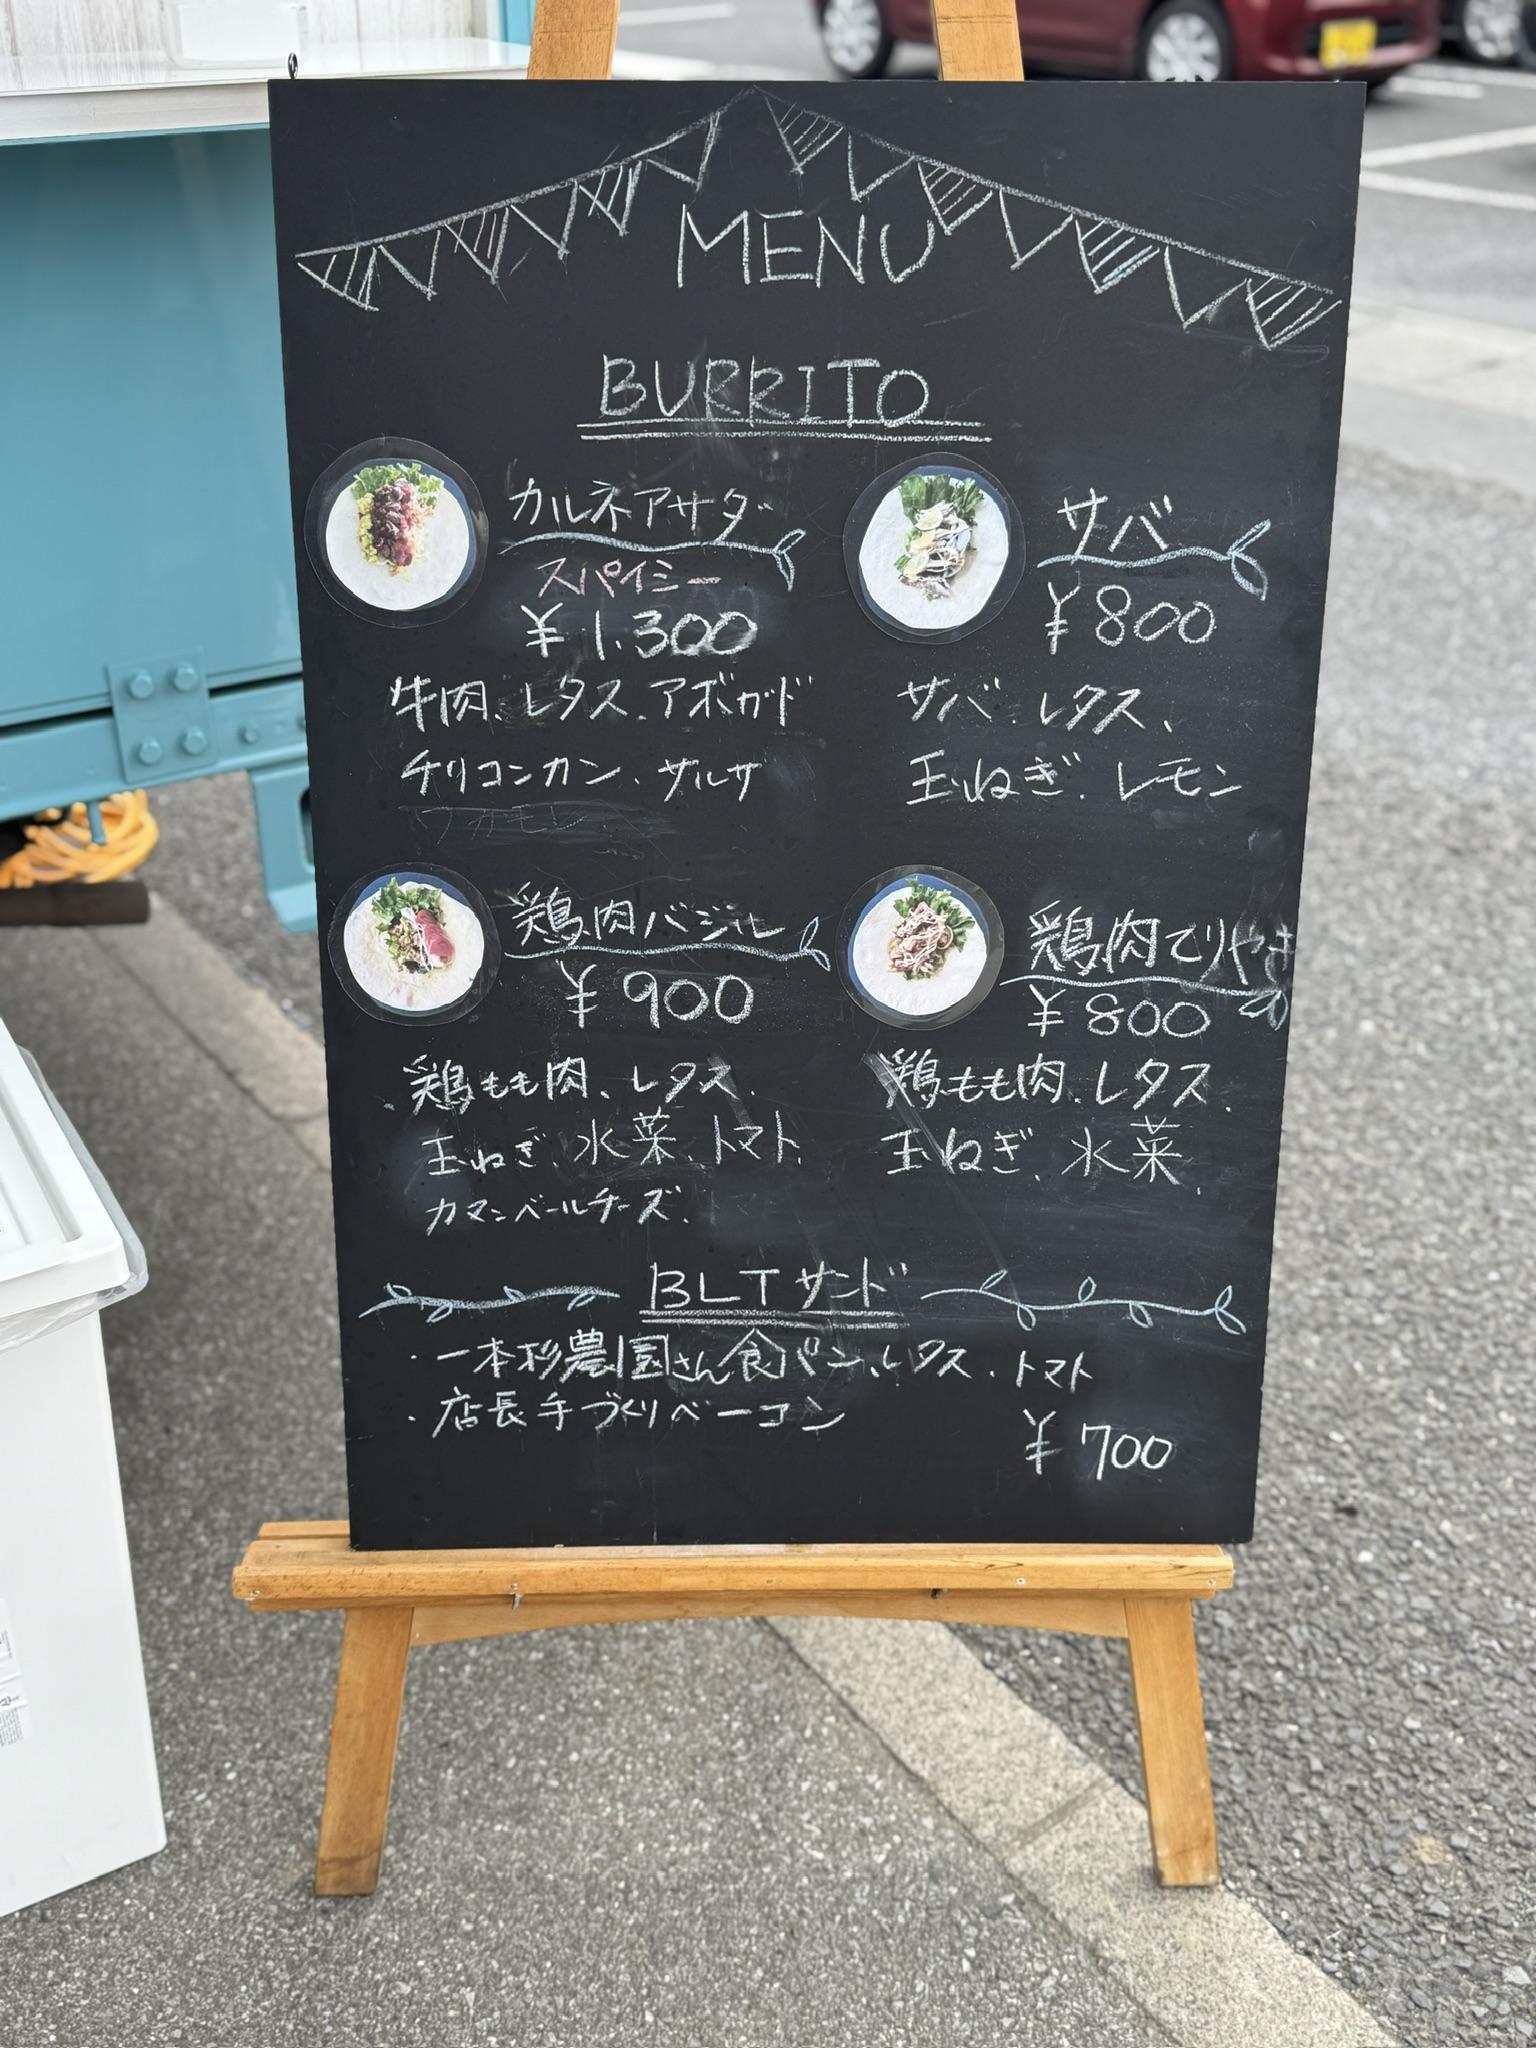 MENU
BURRITO
カルネアサダ
スパイシー
¥1.300
牛肉、レタス、アボガド
チリコンカン、サルサ
サバ
¥800
サバ、レタス、
玉ねぎ、レモン
鶏肉バジル
¥900
鶏もも肉、レタス、
玉ねぎ、水菜、トマト、
カマンベールチーズ、
鶏肉てりやき
¥800
鶏もも肉、レタス、
玉ねぎ、水菜、
BLTサンド
・一本杉農園さん食パン、レタス、トマト
・店長手づくりベーコン
¥700